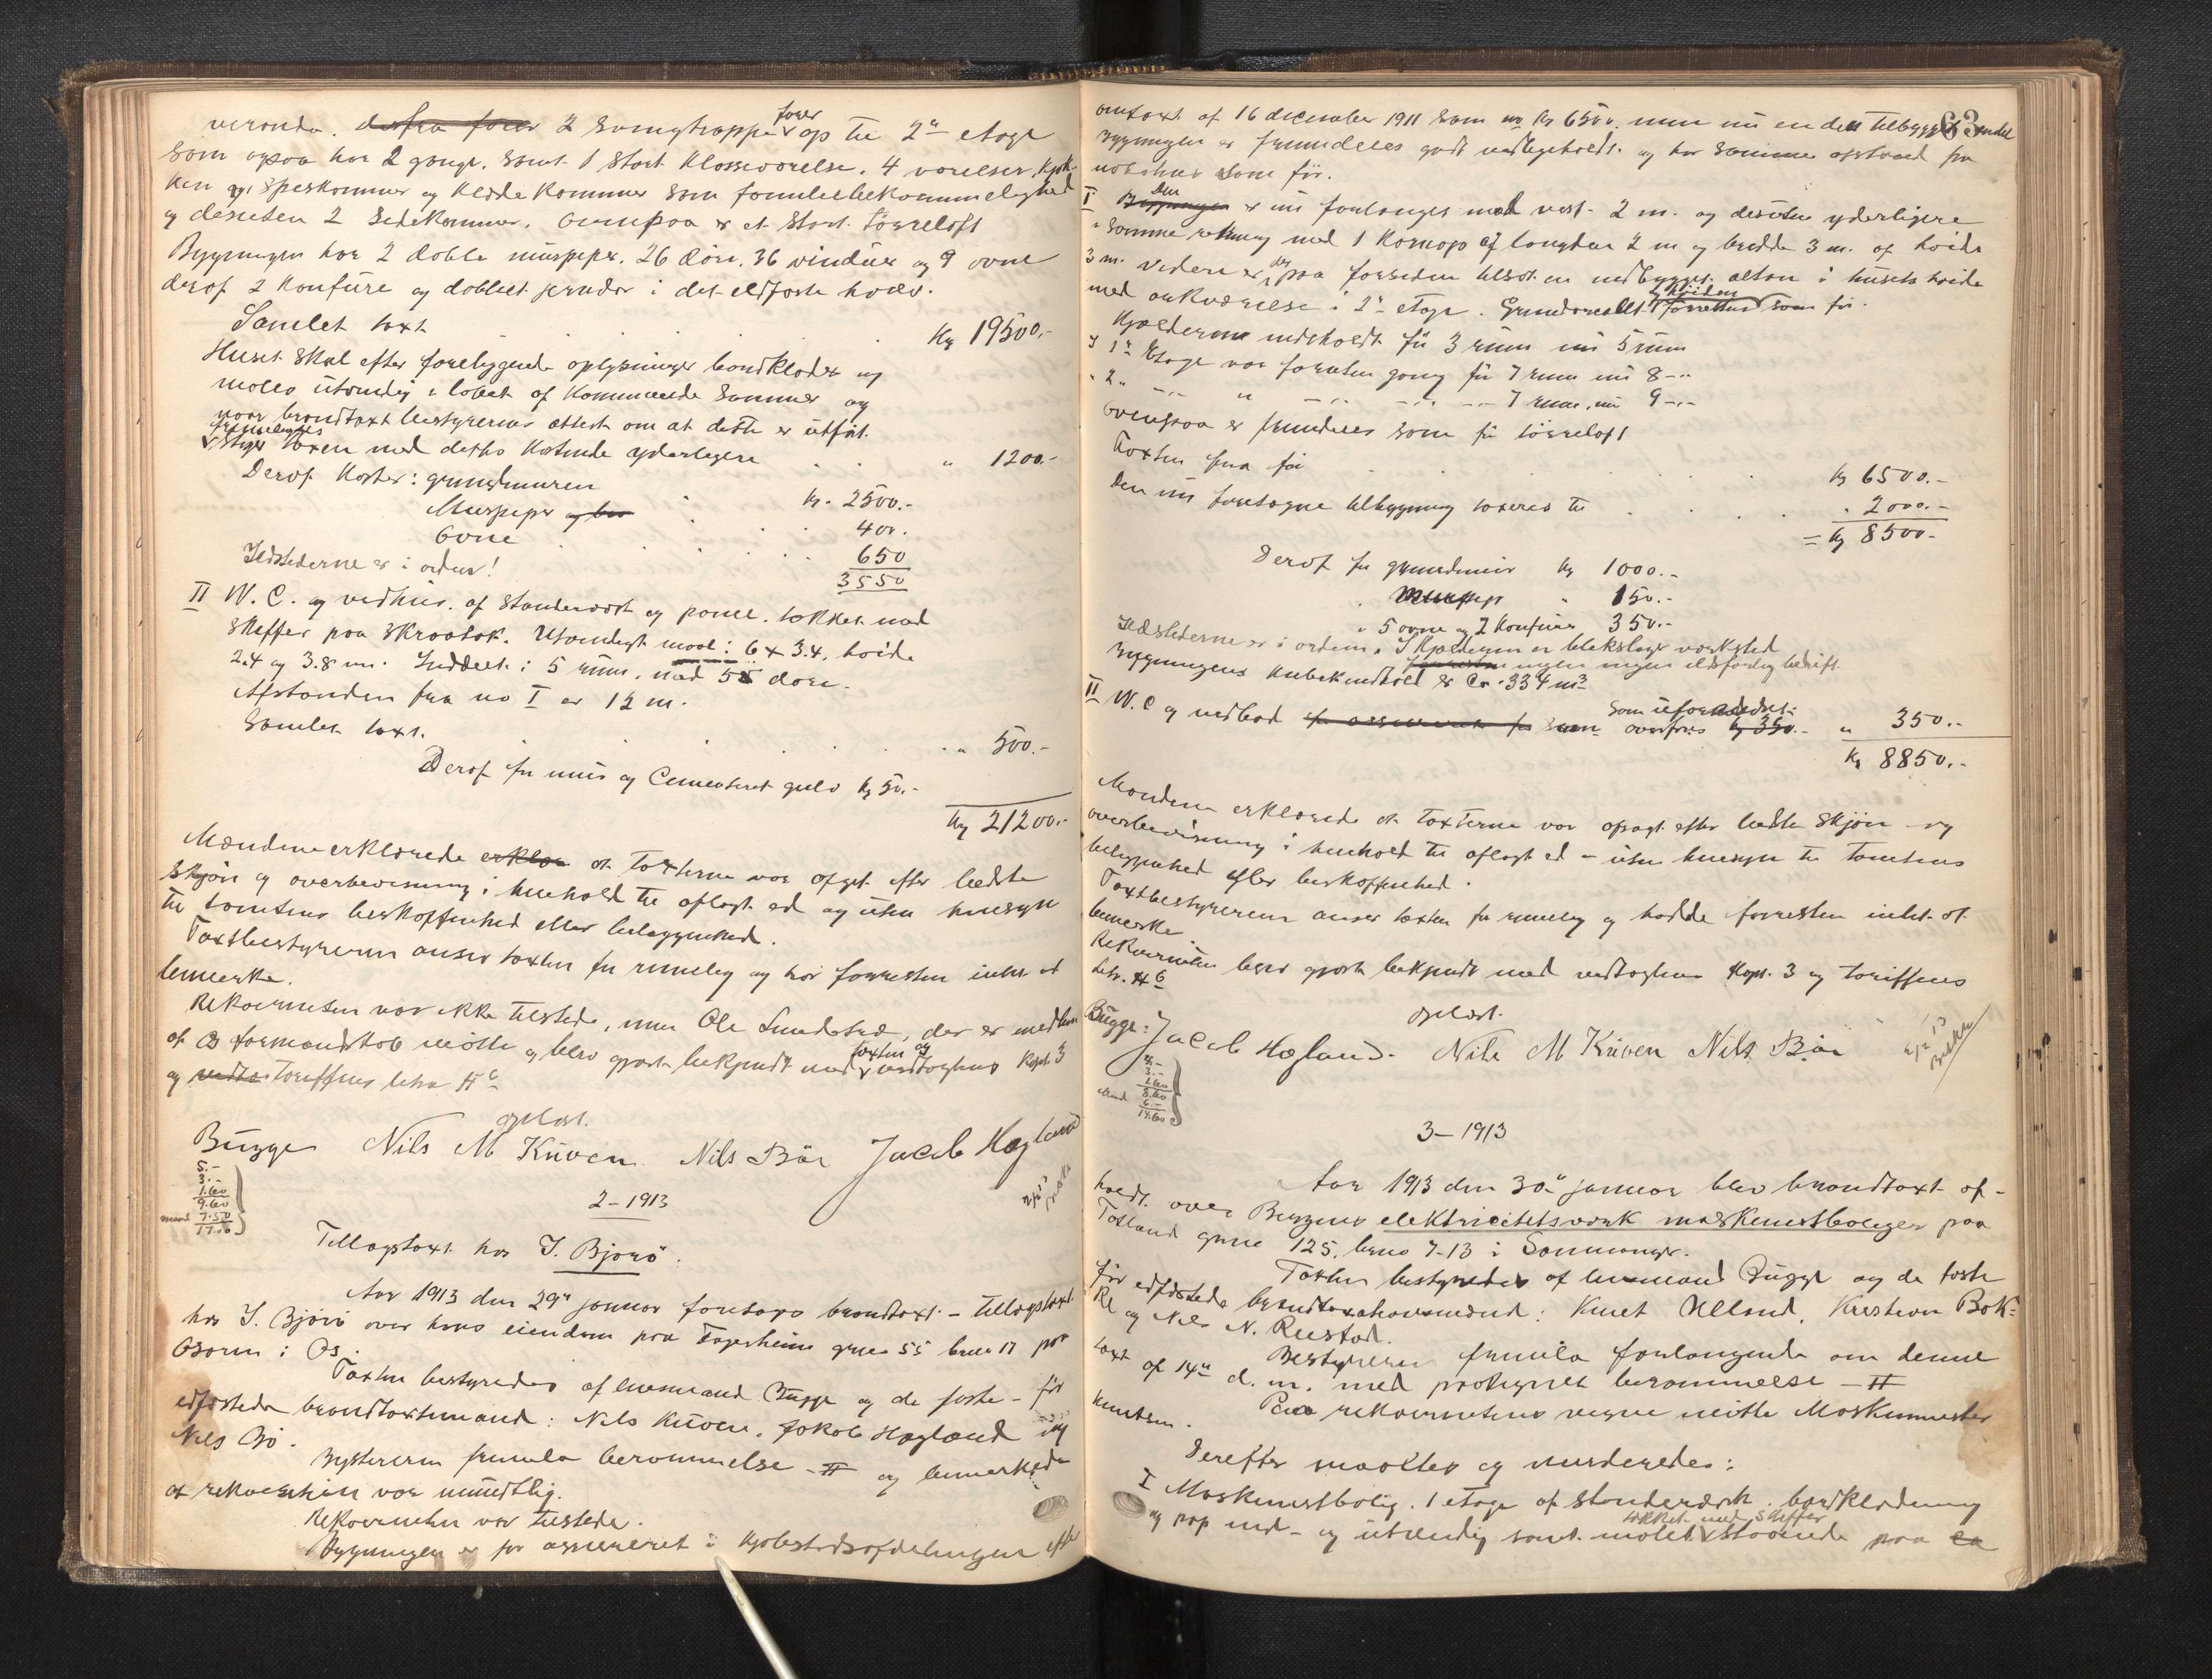 veranda. derfra fører 2 svingtrapper fører op til 2den etage
som ogsaa har 2 gange. samt 1 stort klasseværelse. 4 værelser, kjøk-
ken og spiskammer og klædekammer som familiebekvemmelighed
og desuten 2 sidekammer. ovenpaa er et stort tørreloft
Bygningen har 2 doble murpiper. 26 døre. 36 vinduer og 9 ovne
deraf 2 komfure og dobbelt panel i det
Samlet taxt Kr 19500.-
Huset skal efter foreliggende oplysninger bordklædes og
males utvendig i løbet af kommende sommer og
naar brandtaxtbestyrerens attest om at dette er utført
fremlægges stiger taxen med dettes kostende yderligere " 1200.-
Deraf koster: grundmuren kr. 2500.-
Murpiper og 400.
Ovne 650
Ildstederne er i orden! 3550
II W.C. og vedhus. af standerværk og panel. tækket med
skiffer paa skraatak. Utvendigt maal: 6 x 3.4, høide
2.4 og 3.8 m. Inddelt i 5 rum. med 5 døre.
Afstanden fra no I er 12 m.
Samlet taxt. " 500.-
Deraf for mur og Cementeret gulv kr 50.-
Kr 21200.-
Mændene erklærede at taxterne var afgit efter bedste
skjøn og overbevisning i henhold til aflagt ed og uten hensyn
til tomtens beskaffenhed eller beliggenhed.
Taxtbestyreren anser taxten for rimelig og har forresten intet at
bemerke.
Rekvirenten var ikke tilstede, men Ole Sundstad, der er medlem
af formandskab møtte og blev gjort bekjendt med taxten og vedtagtens kapt. 3
og tariffens litra H 6
oplæst.
Bugge Nils M Kuven Nils Bör Jacob Hagland
5.-
3.-
1.60
9.60
mænd 7.50
17.10
2-1913
Tillægstaxt hos I. Bjorø.
Aar 1913 den 29de januar foretages brandtaxt - tillægstaxt
hos I. Bjorø over hans eiendom paa Fagerheim gnus 55 bnus 17 paa
Osøren i Os.
Taxten bestyredes af lensmand Bugge og de faste - før
edfæstede brandtaxtmænd: Nils Kuven, Jakob Hagland og
Nils Bö.
Bestyreren fremla berammelse - # og bemerkede
at rekvisition var mundtlig.
Rekvirenten var tilstede.
Bygningen er før assureret i Kjøbstadsafdelingen efter
63
omtaxt af 16 december 1911 som no kr 6500. men nu en del tilbygget
Bygningen er fremdeles godt vedligeholdt. og har samme afstand fra
nabohus som før.
I Bygningen Den er nu forlænges mod vest 2 m. og desuten yderligere
i samme retning med 1 karnap af længden 2 m og bredde 3 m. af høide
3 m. videre er der paa forsiden tilsat en nedbygget altan i husets høide
med arkværelse i 2den etage. som før.
Kjælderen indeholdt før 3 rum nu 5 rum
I 1ste Etage var foruten gang før 7 rum nu 8 -"-
" 2den " " -"- -"- 7 rum, nu 9 -"-
Ovenpaa er fremdeles som før tørreloft
Taxten fra før Kr 6500.-
Den nu foretagne tilbygning taxeres til " 2000.-
= Kr 8500.-
Deraf for grundmur kr 1000.-
" Murpiper " 150.-
" 5 ovne og 2 komfurer 350.-
Ildstederne er i orden. I Kjælderen er blikslager værksted
forresten ingen ildsfarlig bedrift.
Bygningens kubikindhold er ca. 334 m3
II W.C og vedbod som uforandret overføres kr 350.- " 350.-
Kr 8850.-
Mændene erklærede at taxterne var afgit efter bedste skjøn og
overbevisning i henhold til aflagt ed - uten hensyn til tomtens
beliggenhed eller beskaffenhed.
Taxtbestyreren anser taxten for rimelig og hadde forresten intet at
bemerke.
Rekvirenten blev gjort bekjendt med vedtagtens Kapt. 3 og tariffens
litr. H 6
oplæst.
Bugge. Jacob Hagland. Nils M Kuven Nils Bör
4.-
3.-
1.60
8.60
Mænd 6.-
14.60
3-1913
Aar 1913 den 30te januar blev brandtaxt af-
holdt over Bergens elektricitetsverk maskinistboliger paa
Tøsland gnus 125. bnus 7-13 i Samnanger.
Taxten bestyredes af lensmand Bugge og de faste
før edfæstede brandtaxationsmænd: Knut Aalland. Kristian Bok-
ke og Nils N. Reistad.
Bestyreren fremla forlangende om denne
taxt af 14de d. m. med paategnet berammelse - #
Paa rekvirentens vegne møtte Maskinmester
Knutsen.
Derefter maaltes og vurderedes:
I Maskinistbolig. 1 etage af standerværk. bordklædning
og pap ind- og utvendig samt malet tækket med skiffer staaende paa en